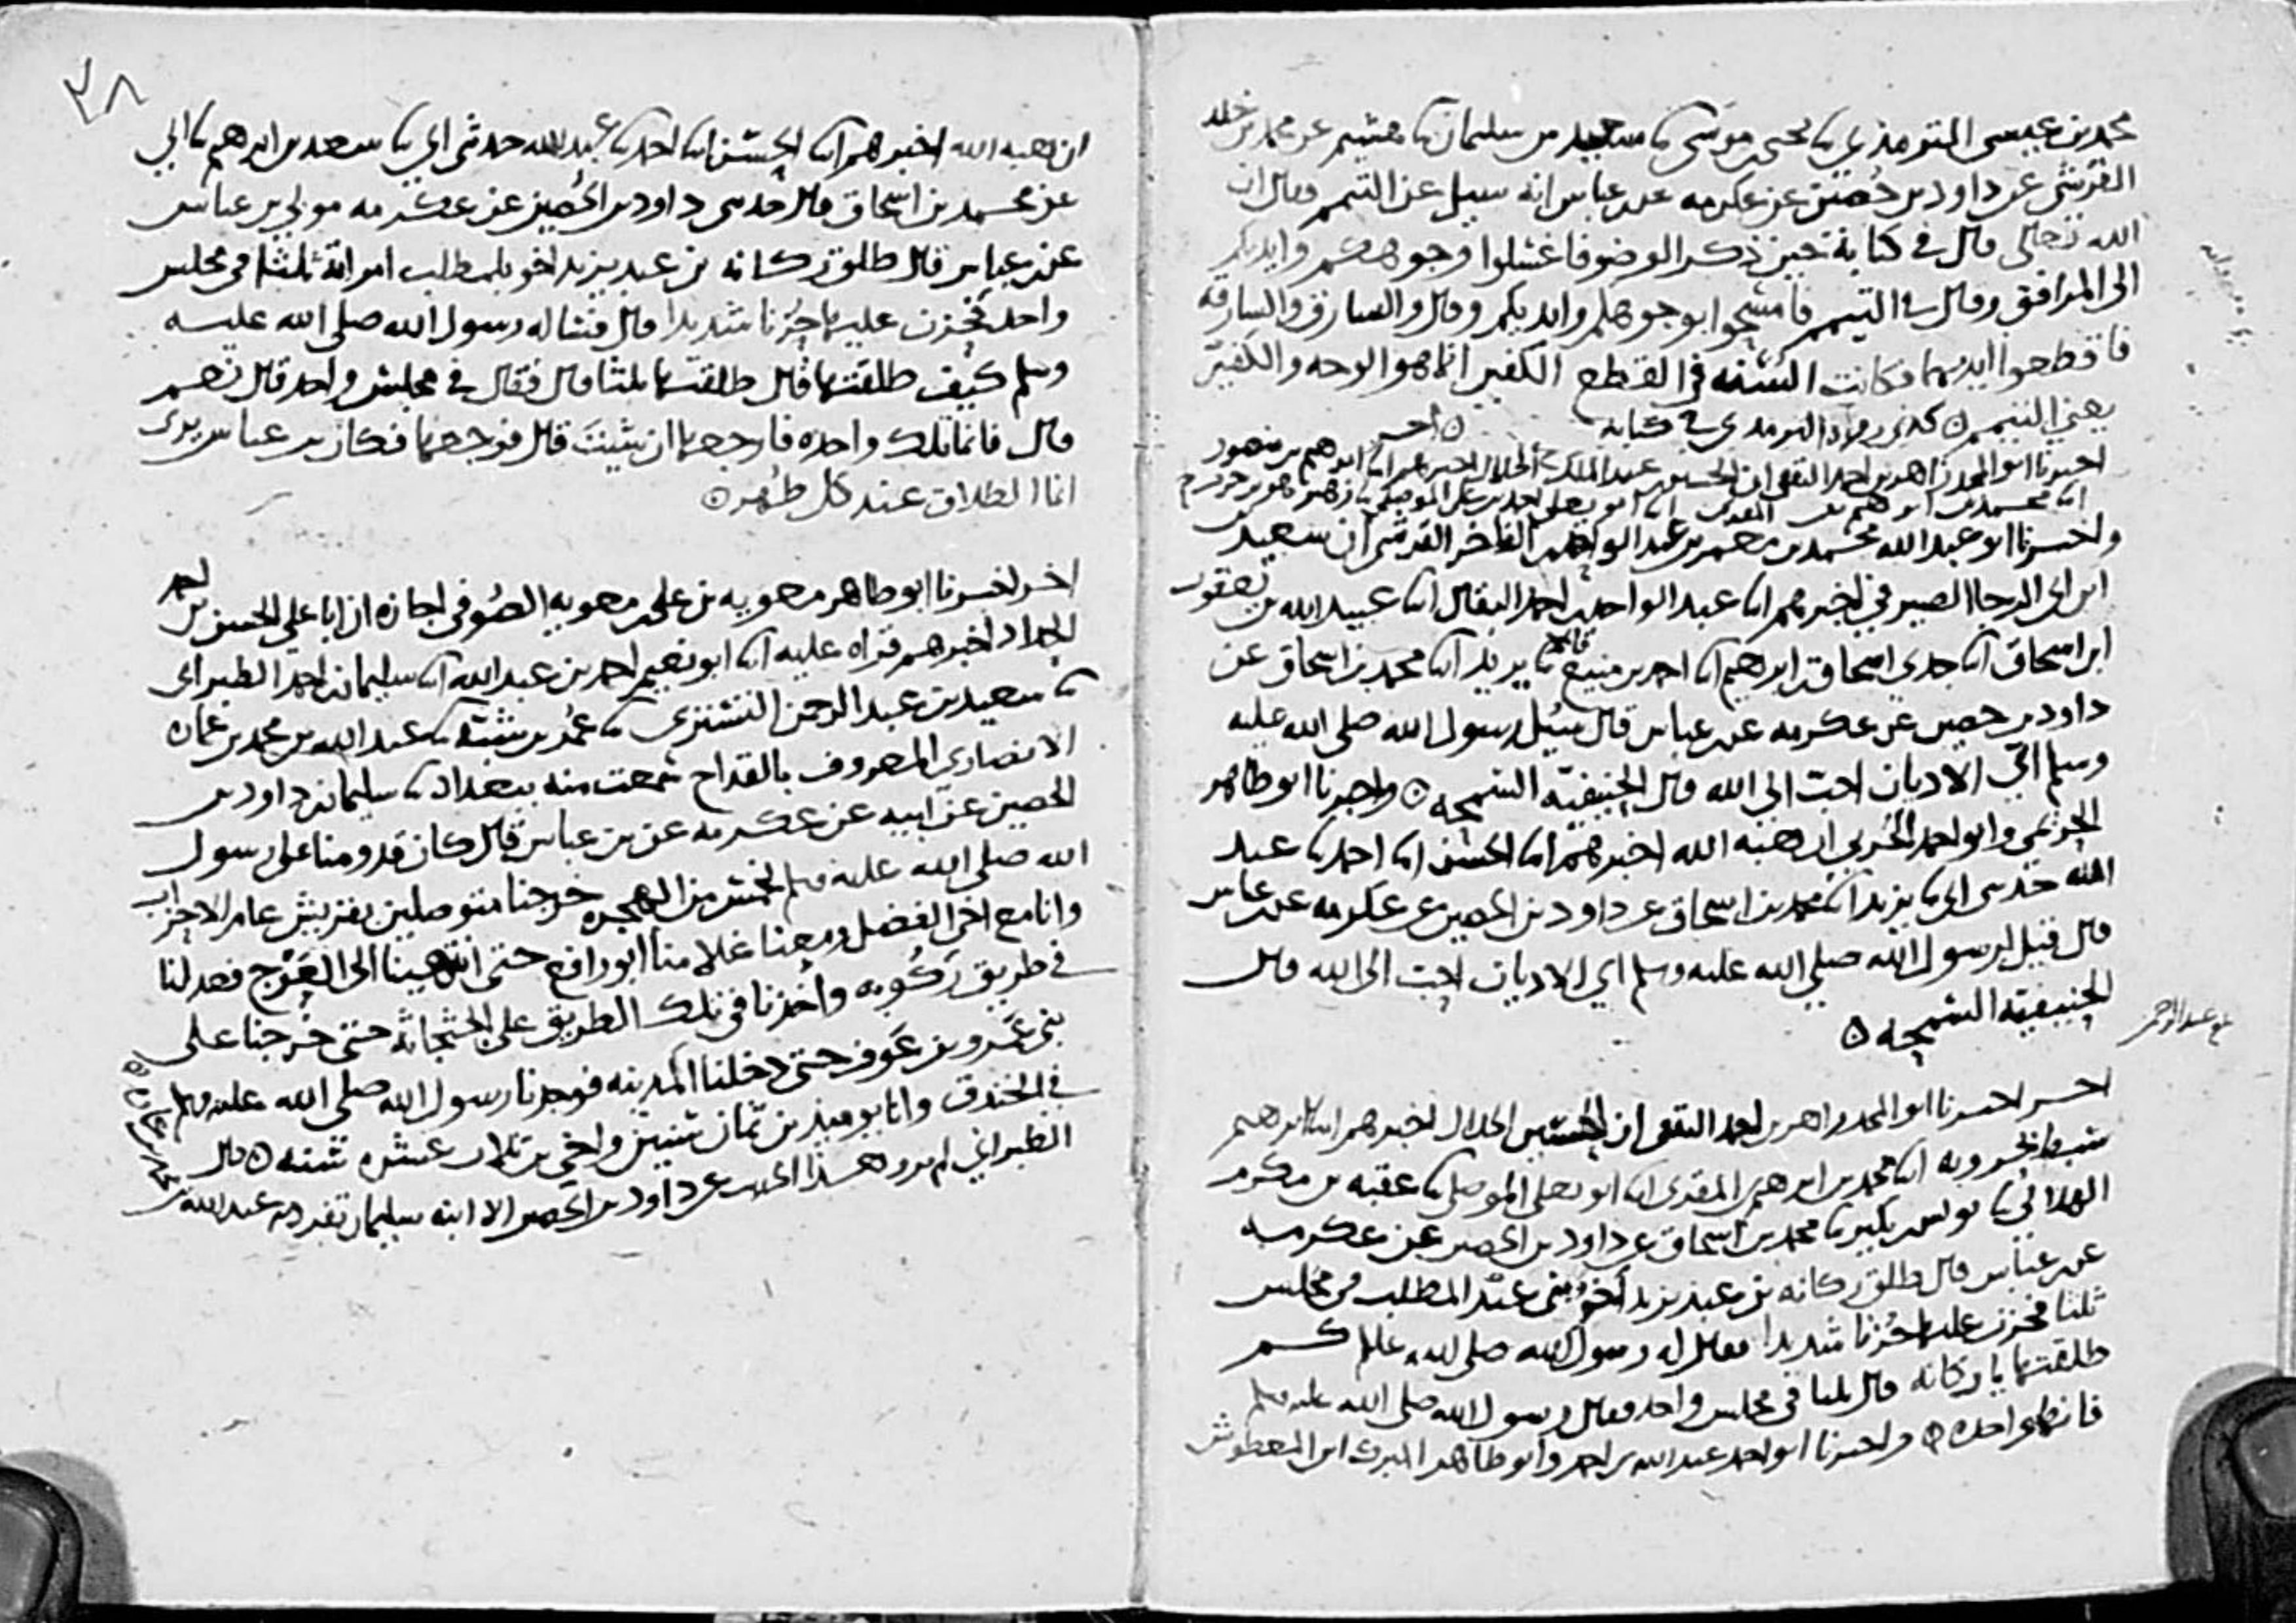 محمد بن عيسى الترمذي ثنا يحيى بن موسى ثنا سعيد بن سليمان ثنا هشيم عن محمد بن خلد
القرشي عن داود بن حصين عن عكرمه عن بن عباس انه سيل عن التيمم فقال ان
الله تعالى قال في كتابه حين ذكر الوضو فاغسلوا وجوهكم وايديكم
الى المرافق وقال في التيمم فامسحوا بوجوهكم وايديكم وقال والسارق والسارقه
فاقطعوا ايديهما فكانت السنه في القطع الكفين انما هو الوجه والكفين
يعني التيمم ٥ كذى رواه الترمذي في كتابه ٥ اخر
اخبرنا ابو المجد زاهر بن احمد الثقفي ان الحسين بن عبد الملك الخلال اخبرهم ابنا ابراهيم بن منصور
ابنا محمد بن ابراهيم بن المقري ابنا ابو يعلى احمد بن علي الموصلي ثنا زهير هو بن حرب ح
واخبرنا ابو عبد الله محمد بن معمر بن عبد الواحد بن الفاخر القرشي ان سعيد بن
ابن ابي الرجا الصيرفي اخبرهم ابنا عبد الواحد بن احمد البقال ابنا عبيد الله بن يعقوب
ابن اسحاق ابنا جدي اسحاق بن ابراهيم ابنا احمد بن منيع قالا ثنا يزيد ابنا محمد بن اسحاق عن
داود بن حصين عن عكرمه عن بن عباس قال سئل رسول الله صلى الله عليه
وسلم اي الاديان احب الى الله قال الحنيفية السمحه ٥ واخبرنا ابو طاهر
الحريمي وابو احمد الحربي ان هبه الله اخبرهم ابنا الحسن ابنا احمد ثنا عبد
الله حدثني ابي ثنا يزيد ابنا محمد بن اسحاق عن داود بن الحصين عن عكرمه عن بن عباس
قال قيل لرسول الله صلى الله عليه وسلم اي الاديان احب الى الله قال
الحنيفية السمحه ٥
اخر اخبرنا ابو المجد زاهر بن احمد الثقفي ان الحسين الخلال اخبرهم ابنا ابراهيم
سبط بحرويه ابنا محمد بن ابراهيم بن المقري ابنا ابو يعلى الموصلي ثنا عقبه بن مكرم
الهلالي ثنا يونس بن بكير ثنا محمد بن اسحاق عن داود بن الحصين عن عكرمه
عن بن عباس قال طلق ركانه بن عبد يزيد اخو بني عبد المطلب في مجلس
ثلثا فحزن عليها حزنا شديدا فقال له رسول الله صلى الله عليه كم
طلقتها يا ركانه قال ثلثا في مجلس واحد فقال رسول الله صلى الله عليه وسلم
فانها واحده ٥ واخبرنا ابو احمد عبد الله بن احمد وابو طاهر المبرك ابن المعطوش
٢٨
ان هبه الله اخبرهم ابنا الحسن ابنا احمد ثنا عبد الله حدثني ابي ثنا سعد بن ابراهيم ثنا ابي
عن محمد بن اسحاق قال حدثني داود بن الحصين عن عكرمه مولى بن عباس
عن بن عباس قال طلق ركانه بن عبد يزيد اخو بلمطلب امراته ثلثا في مجلس
واحد فحزن عليها حزنا شديدا قال فساله رسول الله صلى الله عليه
وسلم كيف طلقتها قال طلقتها ثلثا قال فقال في مجلس واحد قال نعم
قال فانما تلك واحده فارجعها ان شيت قال فرجعها فكان بن عباس يرى
انما الطلاق عند كل طهر ٥
اخر اخبرنا ابو طاهر معويه بن علي بن معويه الصوفي اجازه ان ابا علي الحسن بن احمد
الحداد اخبرهم قراه عليه ابنا ابو نعيم احمد بن عبد الله ابنا سليمان بن احمد الطبراني
ثنا سعيد بن عبد الرحمن التستري ثنا عمر بن شبة ثنا عبد الله بن محمد بن عماره
الانصاري المعروف بالقداح سمعت منه ببغداد ثنا سليمان بن داود بن
الحصين عن ابيه عن عكرمه عن بن عباس قال كان قدومنا على رسول
الله صلى الله عليه وسلم لخمس من الهجره خرجنا متوصلين بقريش عام الاحزاب
وانا مع اخي الفضل ومعنا غلامنا ابو رافع حتى انتهينا الى العرج فعدل لنا
في طريق ركوبه واخذنا في تلك الطريق على الجثجاثه حتى خرجنا على
بني عمرو بن عوف حتى دخلنا المدينه فوجدنا رسول الله صلى الله عليه وسلم
في الخندق وانا يوميذ بن ثمان سنين واخي بن ثلاث عشره سنه ٥ قال
الطبراني لم يرو هذا الحديث عن داود بن الحصين الا ابنه سليمان تفرد به عبد الله بن
محمد بن عماره